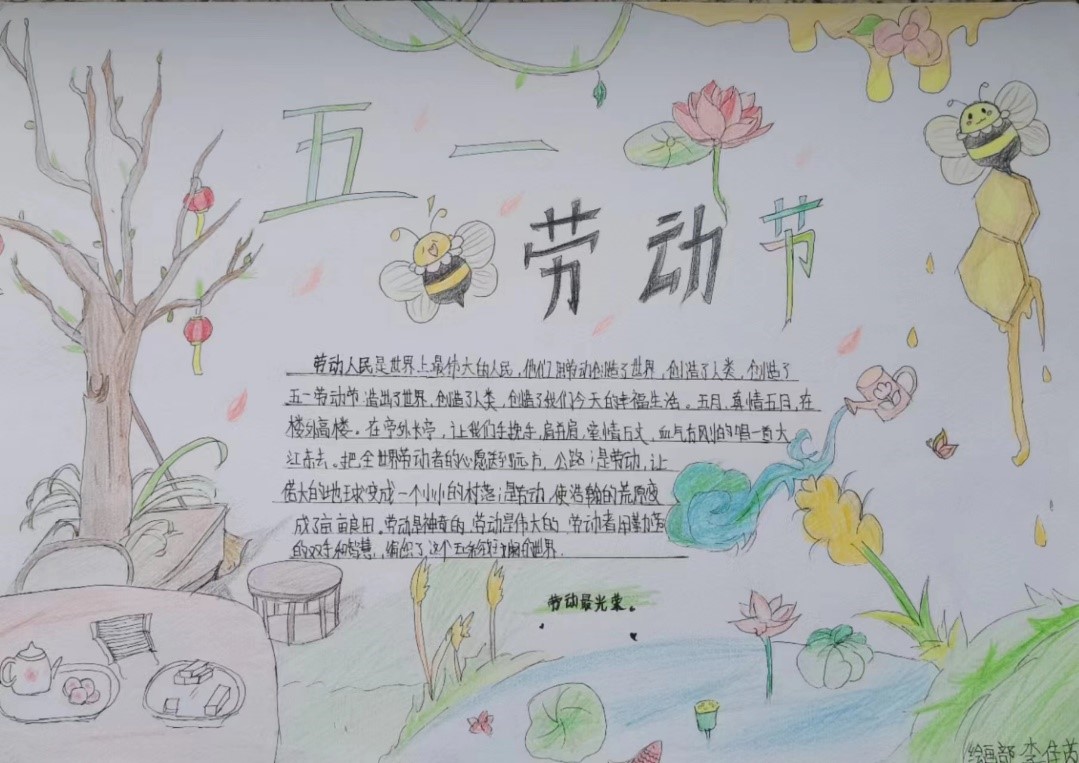 五一
劳动节
劳动人民是世界上最伟大的人民，他们用劳动创造了世界，创造了人类，创造了
五一劳动节 造出了世界，创造了人类，创造了我们今天的幸福生活。五月，真情五日，在
楼外高楼。在亭外长亭，让我们手挽手，肩并肩，豪情万丈，血气方刚的唱一首大
江东去。把全世界劳动者的心愿 到远方，公路；是劳动，让
偌大的地球变成一个小小的村落；是劳动，使浩翰的荒原变
成了亩亩良田。劳动是神奇的，劳动是伟大的，劳动者用勤劳
的双手和智慧，编 了这个五彩 的世界.
劳动最光荣。
绘画部 李佳芮